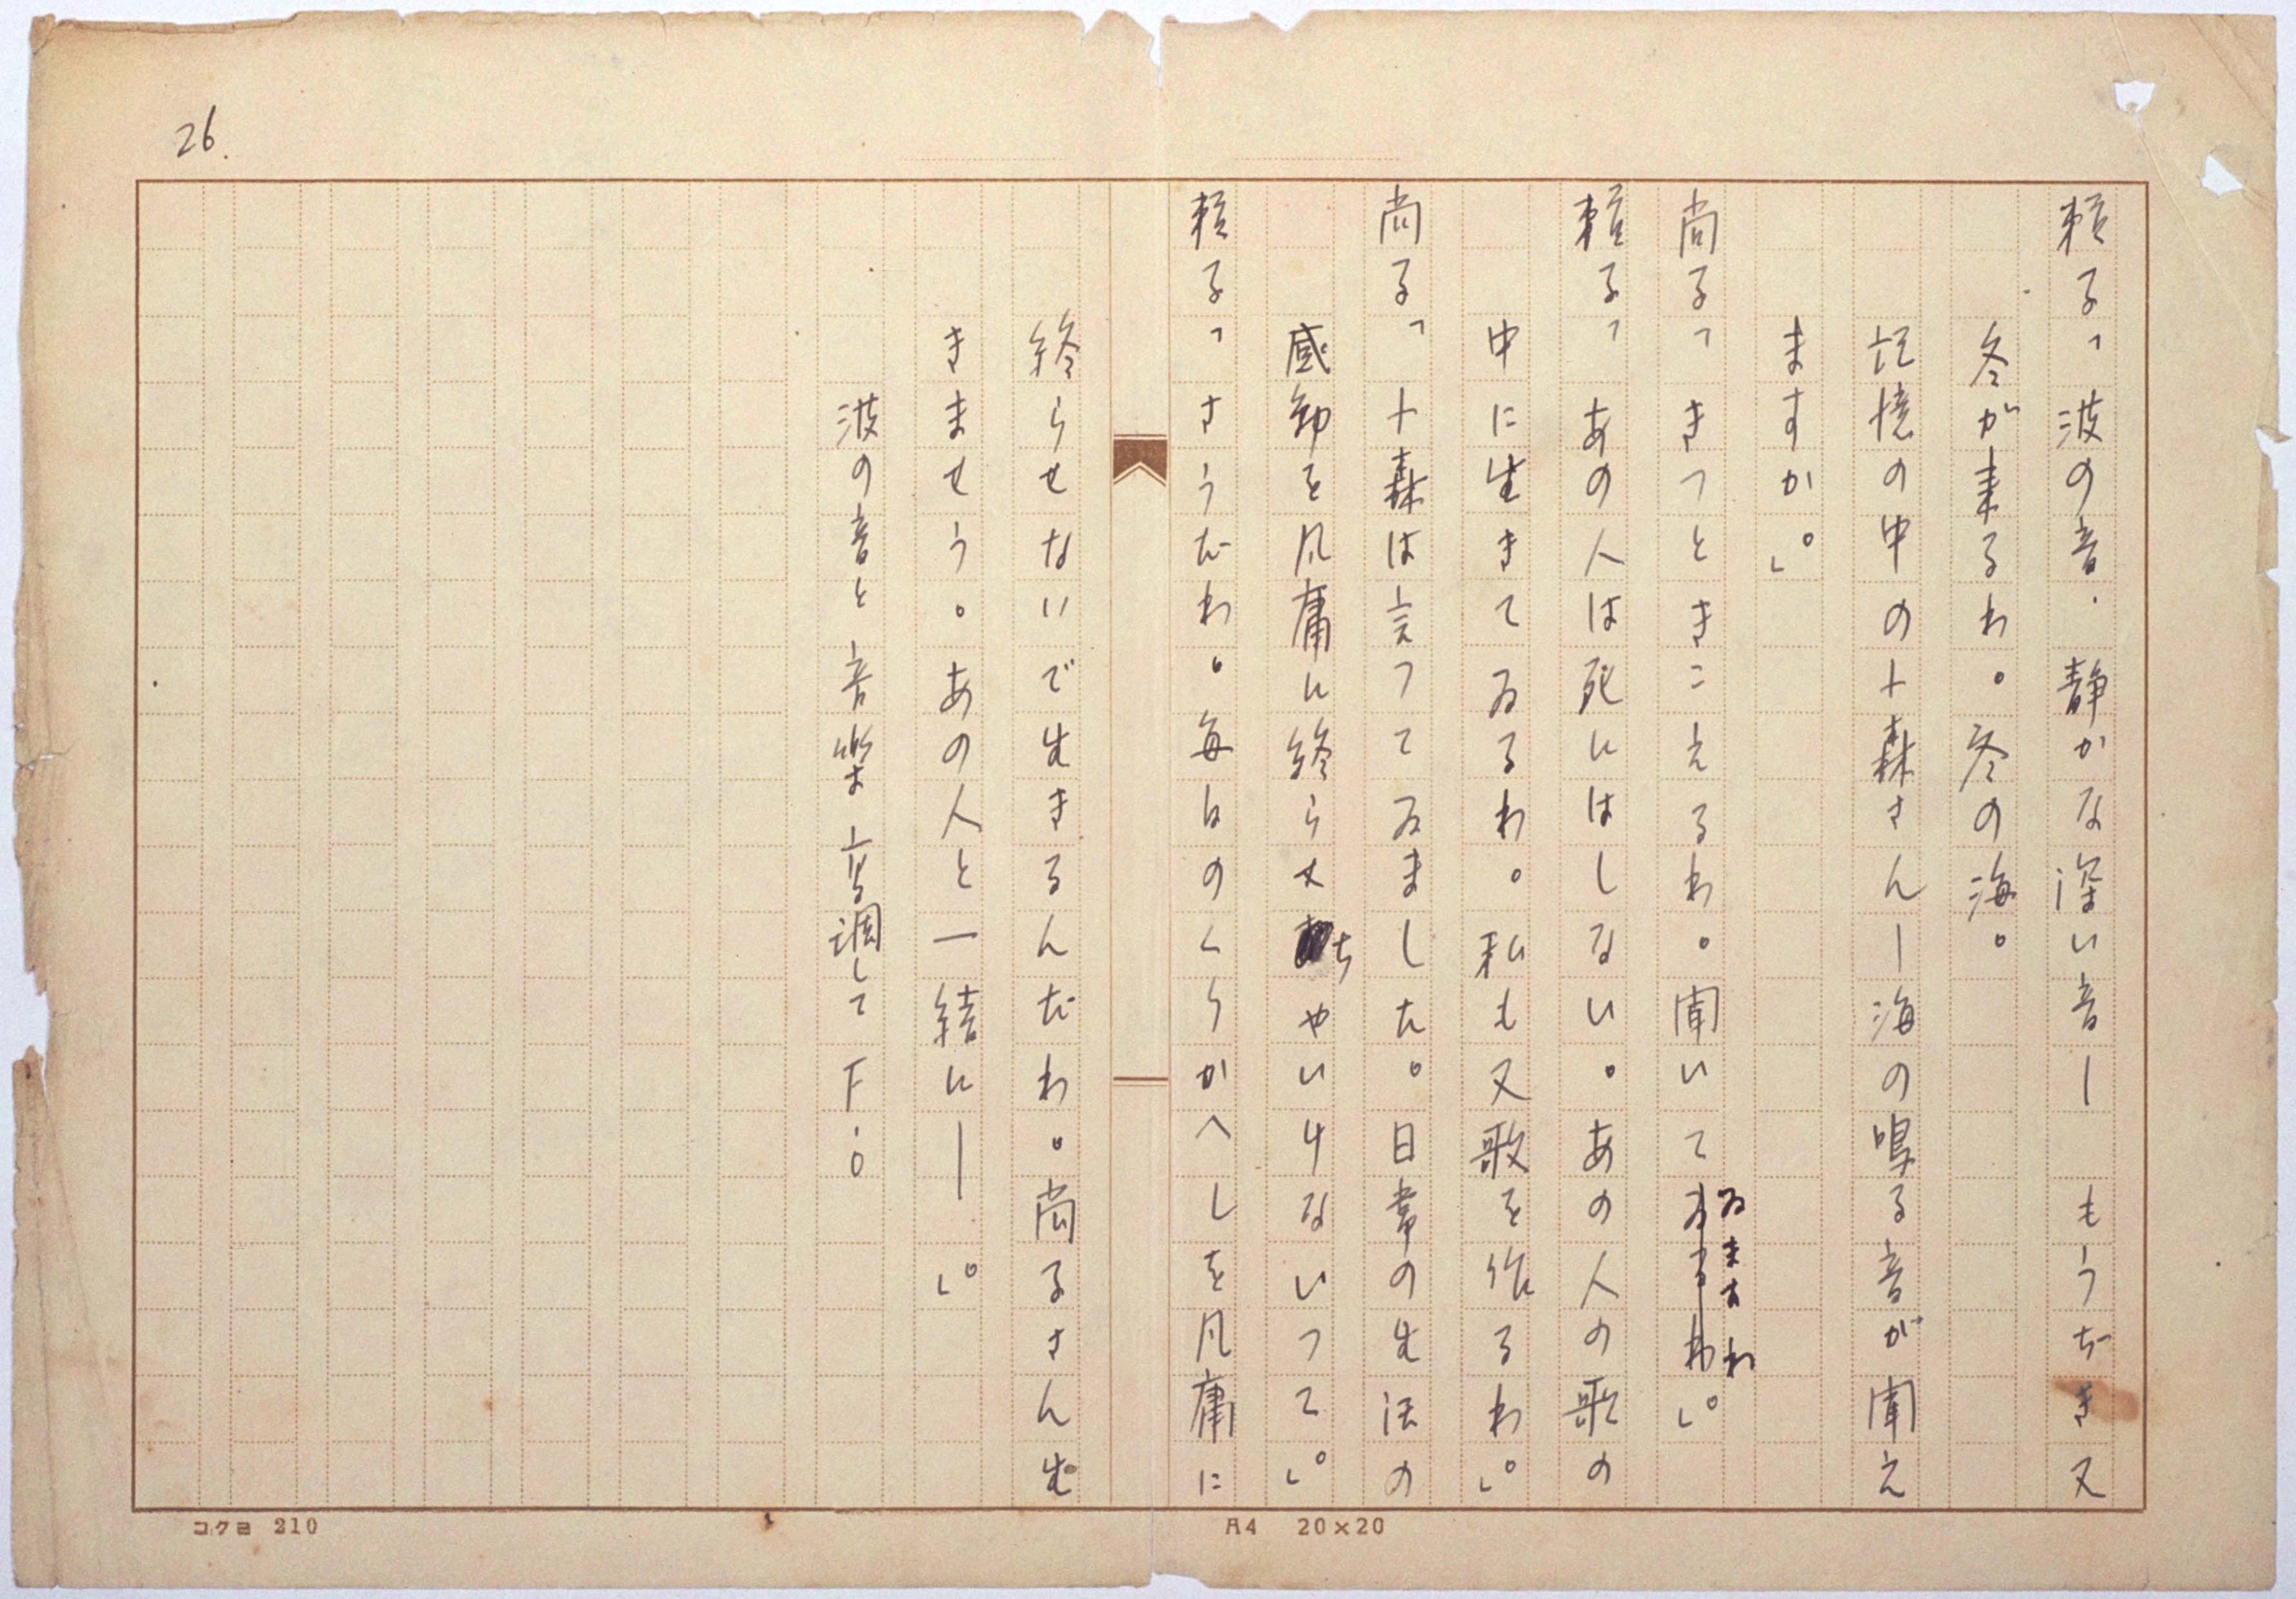 26.
頼子「波の音・静かな深い音― もうぢき又
冬が来るわ。冬の海。
記憶の中の大森さん―海の鳴る音が聞え
ますか。」
尚子「きつときこえるわ。聞いてゐますわ。」
頼子「あの人は死にはしない。あの人の歌の
中に生きてゐるわ。私も又歌を作るわ。」
尚子「大森は言つてゐました。日常の生活の
感動を凡庸に終らせちやいけないつて。」
頼子「さうだわ。毎日のくりかへしを凡庸に
終らせないで生きるんだわ。尚子さん生
きませう。あの人と一緒に――。」
波の音と音楽高調してF・O
コクヨ 210
A4 20×20